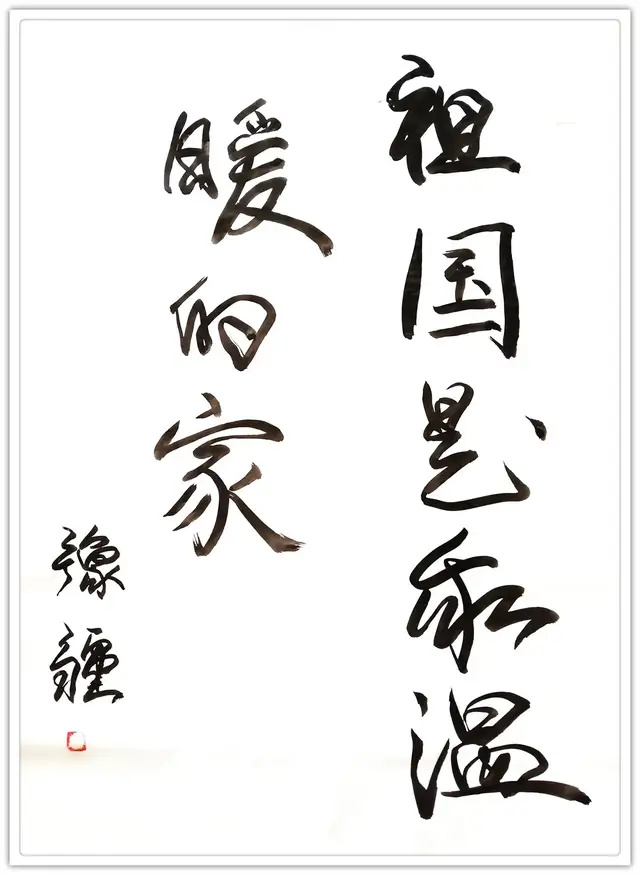 祖国是我温
暖的家
豫疆